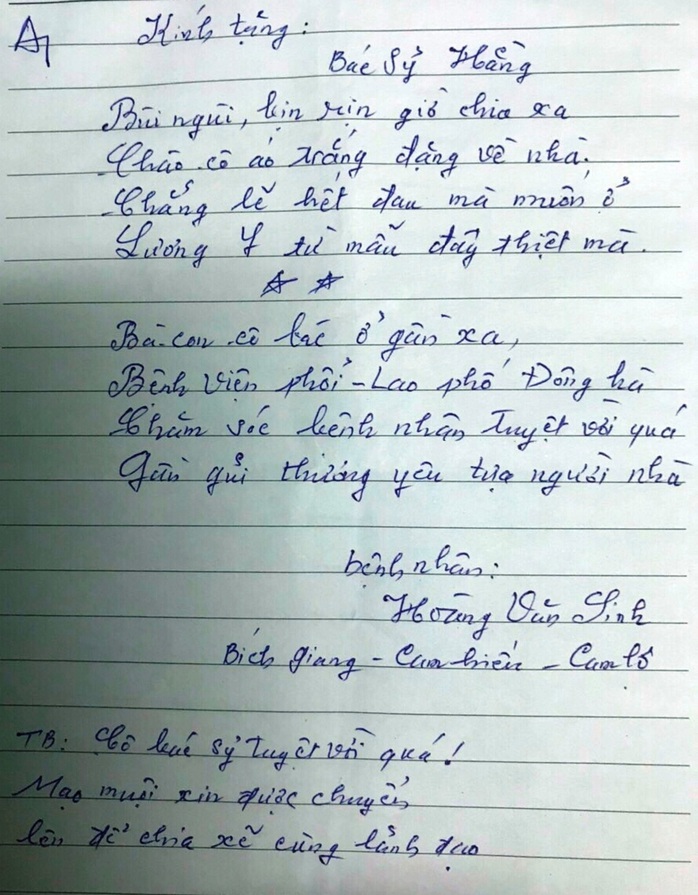 A1 Kính tặng:
Bác Sỹ Hằng
Bùi ngùi, bịn rịn giờ chia xa
Chào cô áo trắng đặng về nhà.
Chẳng lẽ hết đau mà muốn ở
Lương Y từ mẫu đây thiệt mà.
Bà con cô bác ở gần xa,
Bệnh viện phổi - Lao phố Đông hà
Chăm sóc bệnh nhân tuyệt vời quá
Gần gủi thương yêu tựa người nhà
bệnh nhân:
Hoàng Văn Sinh
Bích Giang - Cam hiếu - Cam lộ
TB: Cô bác sỹ tuyệt vời quá!
Mạo muội xin được chuyển
lên để chia xẽ cùng lãnh đạo